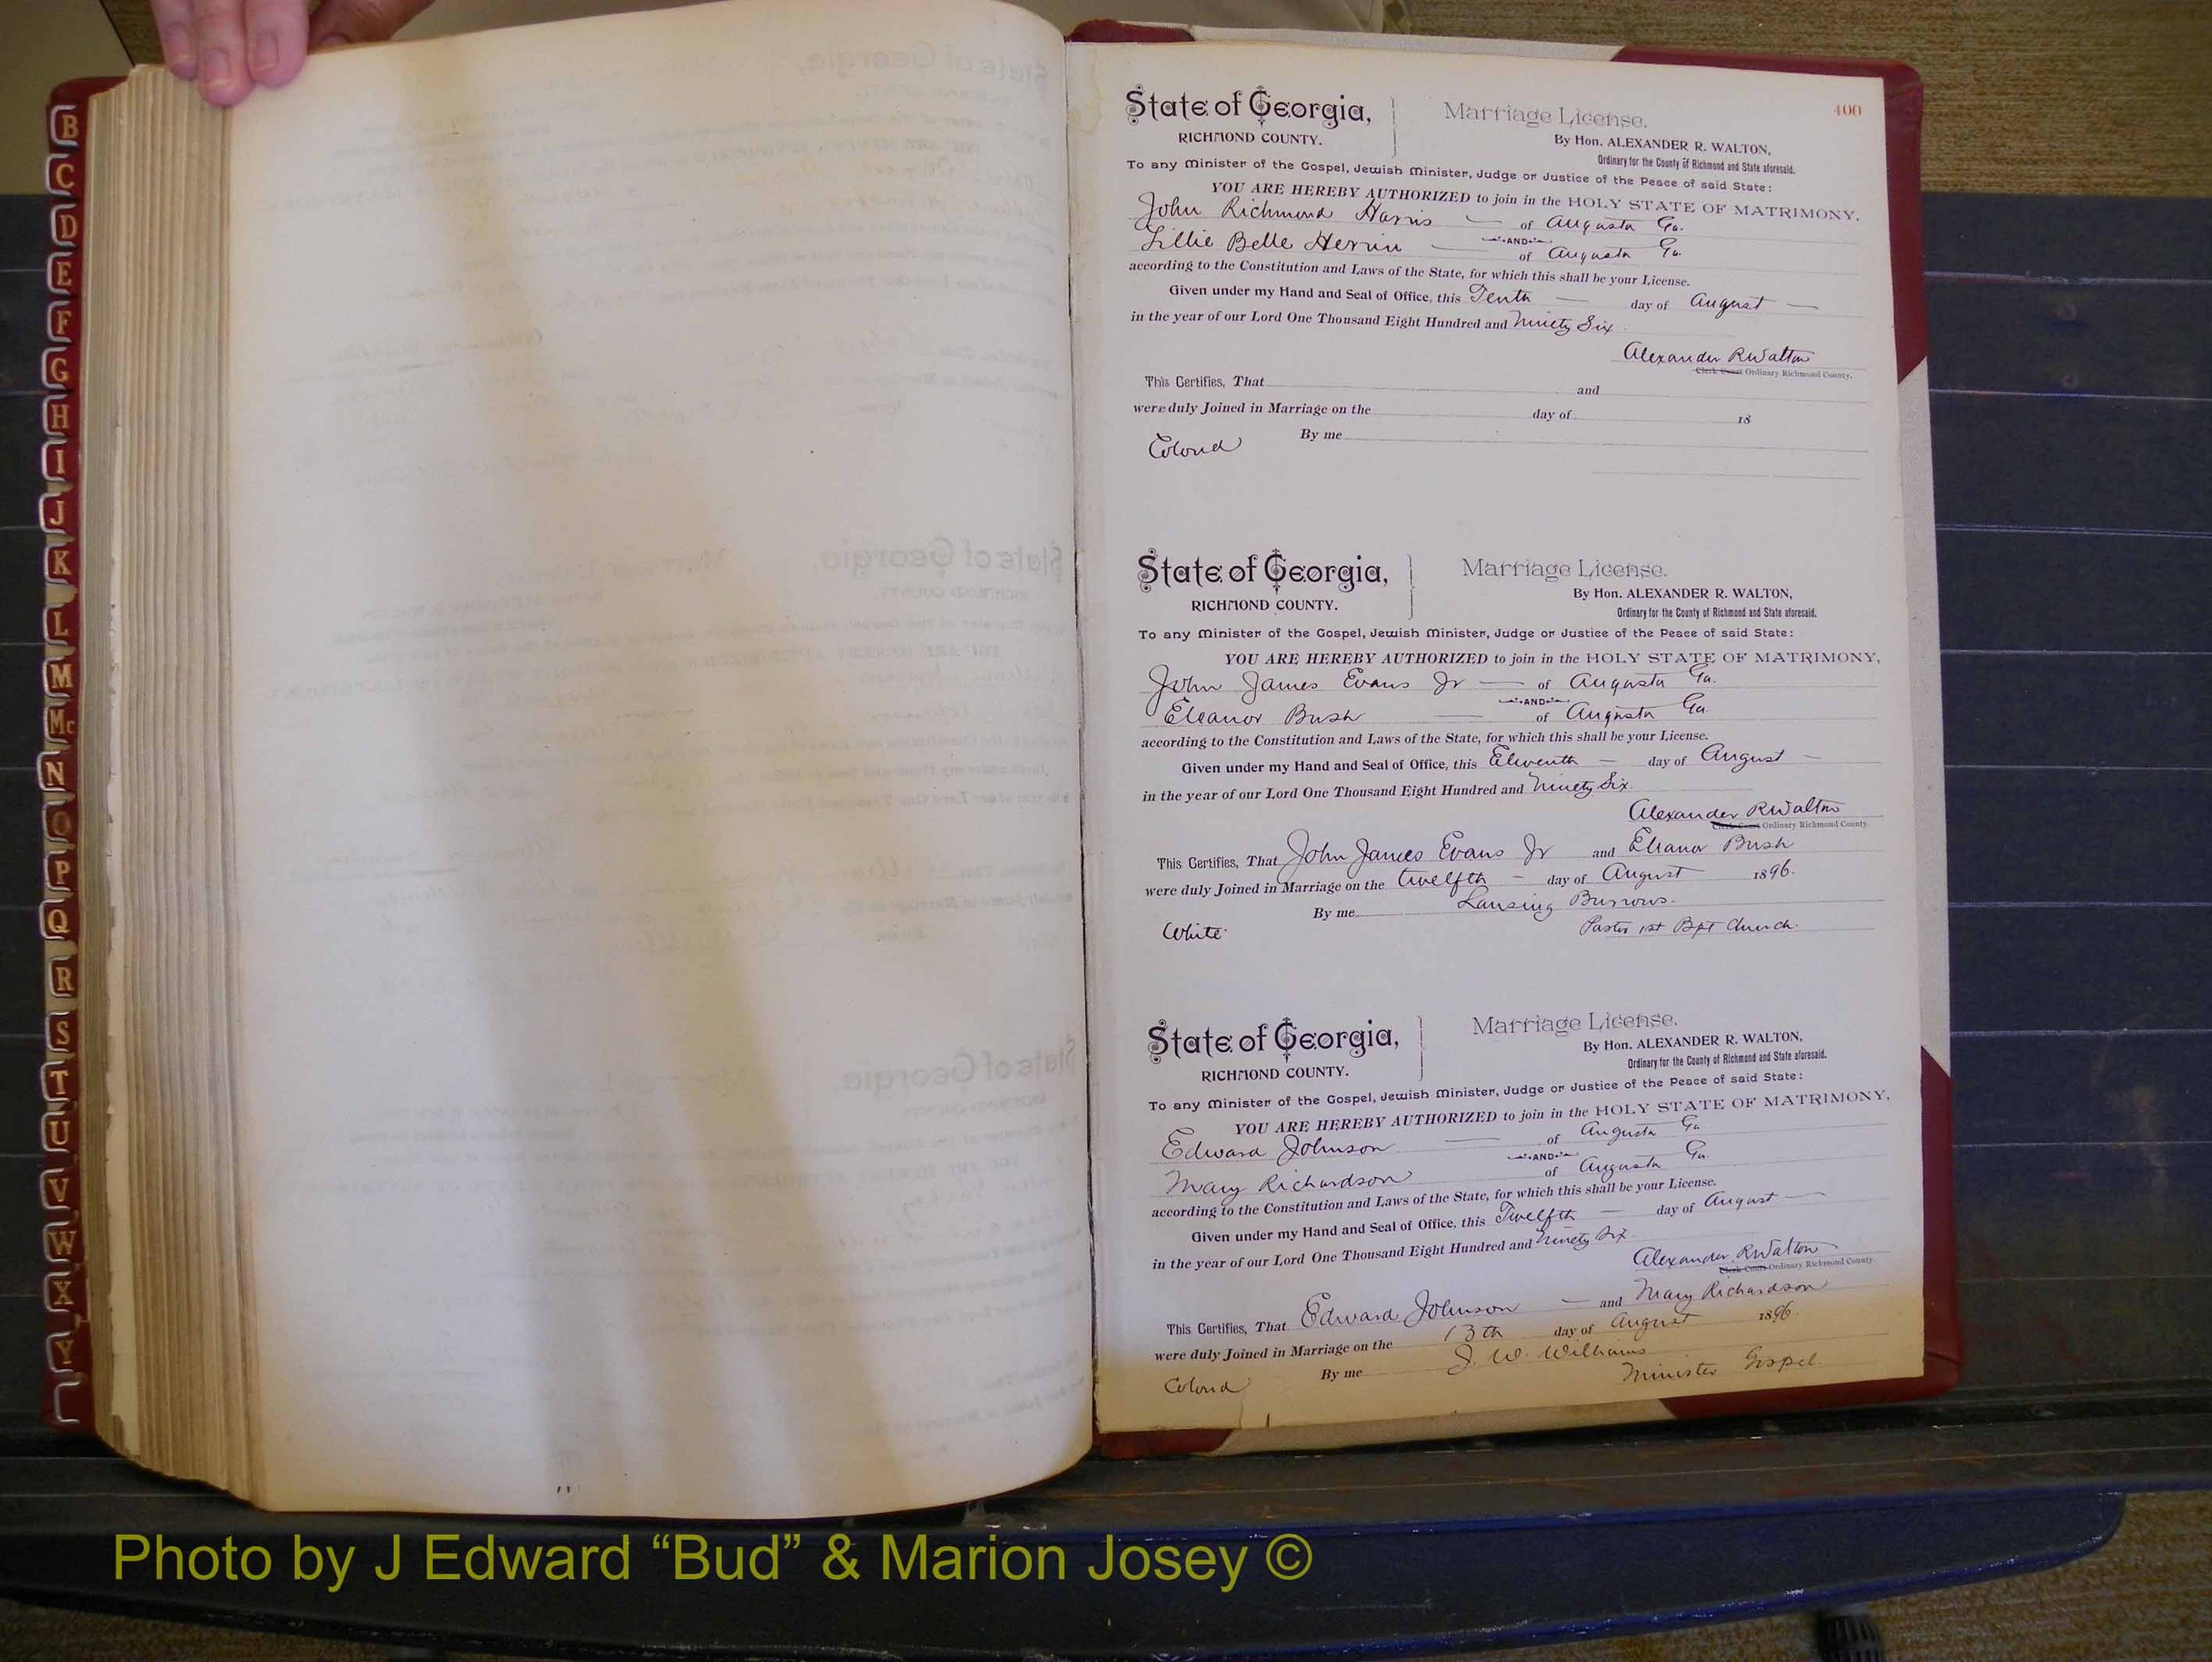 B
C
D
E
F
G
H
I
J
K
L
M
Mc
N
O
P
Q
R
S
T
U
V
W
X
Y
400
State of Georgia,
RICHMOND COUNTY.
Marriage License.
By Hon. ALEXANDER R. WALTON,
Ordinary for the County of Richmond and State aforesaid.
To any Minister of the Gospel, Jewish Minister, Judge or Justice of the Peace of said State:
YOU ARE HEREBY AUTHORIZED to join in the HOLY STATE OF MATRIMONY,
John Richmond Harris — of Augusta Ga.
AND
Lillie Belle Herrin — of Augusta Ga.
according to the Constitution and Laws of the State, for which this shall be your License.
Given under my Hand and Seal of Office, this Tenth — day of August —
in the year of our Lord One Thousand Eight Hundred and Ninety Six.
Alexander R Walton
Clerk Court Ordinary Richmond County.
This Certifies, That and
were duly Joined in Marriage on the day of 18
By me
Colored
State of Georgia,
RICHMOND COUNTY.
Marriage License.
By Hon. ALEXANDER R. WALTON,
Ordinary for the County of Richmond and State aforesaid.
To any Minister of the Gospel, Jewish Minister, Judge or Justice of the Peace of said State:
YOU ARE HEREBY AUTHORIZED to join in the HOLY STATE OF MATRIMONY,
John James Evans Jr — of Augusta Ga.
AND
Eleanor Bush — of Augusta Ga.
according to the Constitution and Laws of the State, for which this shall be your License.
Given under my Hand and Seal of Office, this Eleventh — day of August —
in the year of our Lord One Thousand Eight Hundred and Ninety Six.
Alexander R Walton
Clerk Court Ordinary Richmond County.
This Certifies, That John James Evans Jr and Eleanor Bush
were duly Joined in Marriage on the twelfth — day of August 1896.
By me Lansing Burrows.
White Pastor 1st Bpt Church.
State of Georgia,
RICHMOND COUNTY.
Marriage License.
By Hon. ALEXANDER R. WALTON,
Ordinary for the County of Richmond and State aforesaid.
To any Minister of the Gospel, Jewish Minister, Judge or Justice of the Peace of said State:
YOU ARE HEREBY AUTHORIZED to join in the HOLY STATE OF MATRIMONY,
Edward Johnson — of Augusta Ga
AND
Mary Richardson of Augusta Ga.
according to the Constitution and Laws of the State, for which this shall be your License.
Given under my Hand and Seal of Office, this Twelfth — day of August —
in the year of our Lord One Thousand Eight Hundred and Ninety Six.
Alexander R Walton
Clerk Court Ordinary Richmond County.
This Certifies, That Edward Johnson — and Mary Richardson
were duly Joined in Marriage on the 13th day of August 1896.
By me J. W. Williams
Colored Minister Gospel.
Photo by J Edward “Bud” & Marion Josey ©